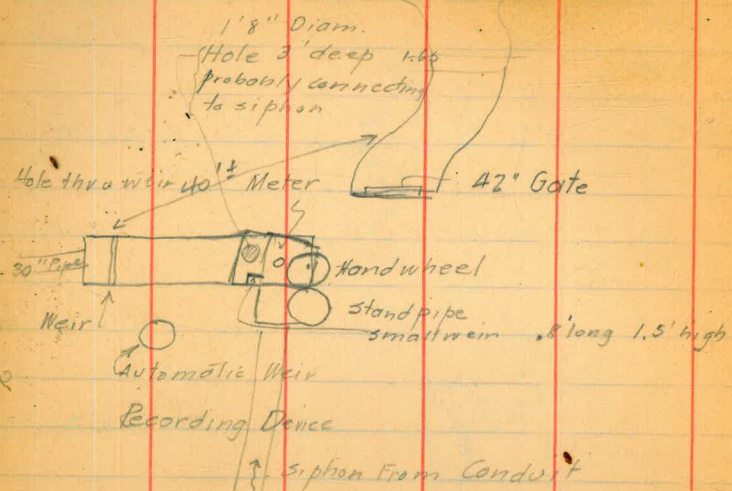 1'8" Diam.
Hole 3' deep
probably connecting
to siphon
Hole thru weir 40'± Meter
42" Gate
30" Pipe
Handwheel
Standpipe
small weir .8' long 1.5' high
Weir
Automatic Weir
Recording Device
Siphon From Conduit